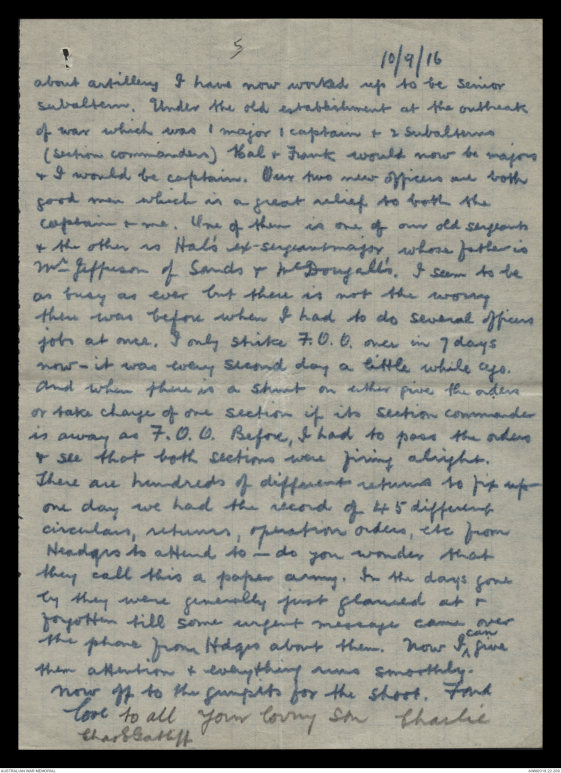 5
10/9/16
about artillery I have now worked up to be senior
subaltern. Under the old establishment at the outbreak
of war which was 1 major 1 captain + 2 subalterns
(section commanders) Hal + Frank would now be majors
+ I would be captain. Our two new officers are both
good men which is a great relief to both the
captain + me. One of them is one of our old sergeants
+ the other is Hal's ex-sergeantmajor whose father is
Mr Jefferson of Sands + McDougall's. I seem to be
as busy as ever but there is not the worry
there was before when I had to do several officers
jobs at once. I only strike F.O.O. once in 7 days
now – it was every second day a little while ago.
And when there is a stunt on either give the orders
or take charge of one section if its section commander
is away as F.O.O. Before, I had to pass the orders
+ see that both sections were firing alright.
There are hundreds of different returns to fix up –
one day we had the record of 45 different
circulars, returns, operation orders, etc from
Headqrs to attend to – do you wonder that
they call this a paper army. In the days gone
by they were generally just glanced at +
forgotten till some urgent message came over
the phone from Hdqrs about them. Now I can give
them attention + everything runs smoothly.
Now off to the gunpits for the shoot. Fond
love to all Your loving Son Charlie
Chas E Gatliff
AUSTRALIAN WAR MEMORIAL